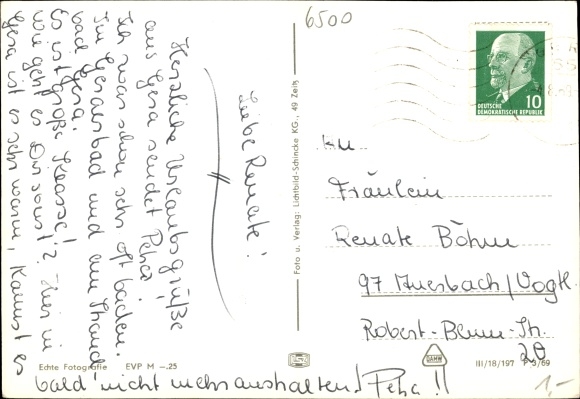 6500
Liebe Renate!
Herzliche Urlaubsgrüße
aus Gera sendet Petra!
Ich war schon sehr oft baden.
Im Geraerbad und am Strand
bad Gera.
Es ist große Klasse!
wie geht es Dir sonst? Hier in
Gera ist es sehr warm, kannst es
bald nicht mehr aushalten! Petra!!
Echte Fotografie EVP M –.25
Foto u. Verlag: Lichtbild-Schincke KG., 49 Zeitz
DEUTSCHE
DEMOKRATISCHE REPUBLIK
10
An
Fräulein
Renate Böhm
97 Auerbach/Vogtl.
Robert-Blum-Str.
20
DAMW
III/18/197 P 3/69
1,-